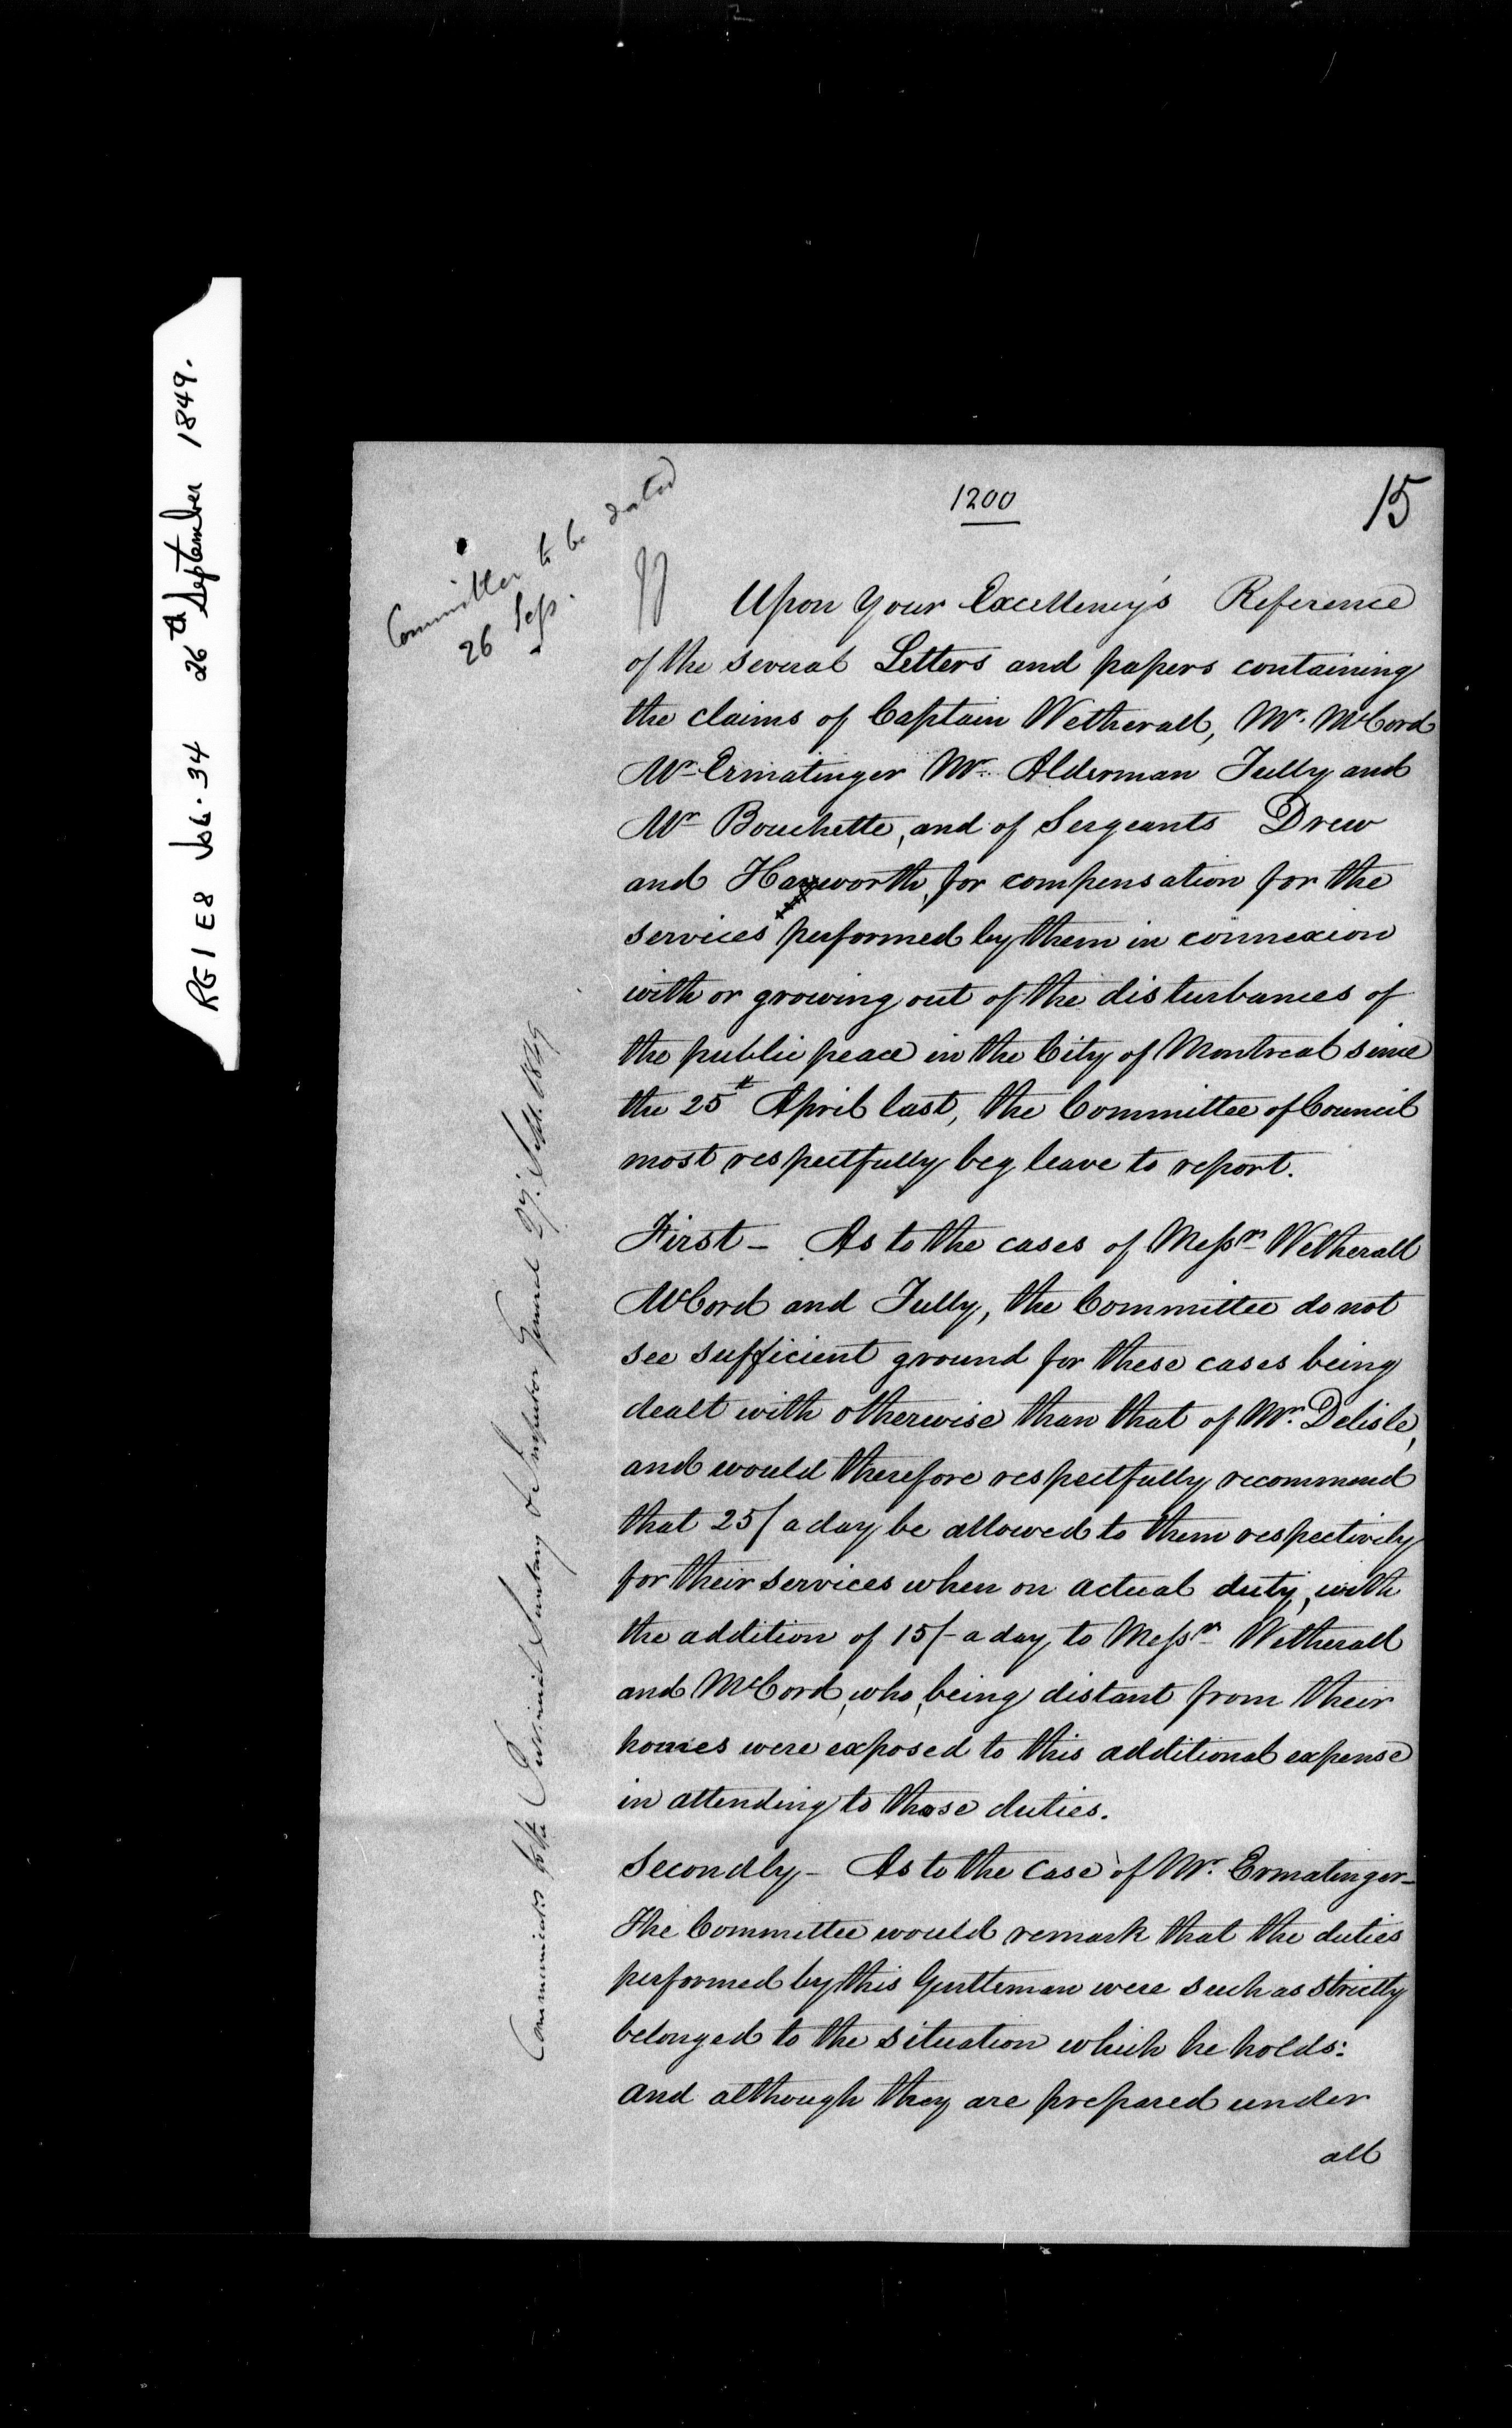 RG1 E8 Vol. 34 26th September 1849.
1200
15
Committee to be dated
26 Sep.
Upon Your Excellency's Reference
of the several Letters and papers containing
the claims of Captain Wetherall, Mr. McCord
Mr Ermatinger Mr. Alderman Tully and
Mr Bouchette, and of Sergeants Drew
and Hayworth, for compensation for the
services performed by them in connexion
with or growing out of the disturbances of
the public peace in the City of Montreal since
the 25th April last, the Committee of Council
most respectfully beg leave to report.
First - As to the cases of Messrs Wetherall
McCord and Tully, the Committee do not
see sufficient ground for these cases being
dealt with otherwise than that of Mr. Delisle,
and would therefore respectfully recommend
that 25/ a day be allowed to them respectively
for their services when on actual duty, with
the addition of 15/- a day to Messrs Wetherall
and McCord, who, being distant from their
homes were exposed to this additional expense
in attending to those duties.
Secondly - As to the case of Mr. Ermatinger -
The Committee would remark that the duties
performed by this Gentleman were such as strictly
belonged to the situation which he holds:
and although they are prepared under
all
Communicated to the Provincial Secretary & Inspector General 27. Sept. 1849